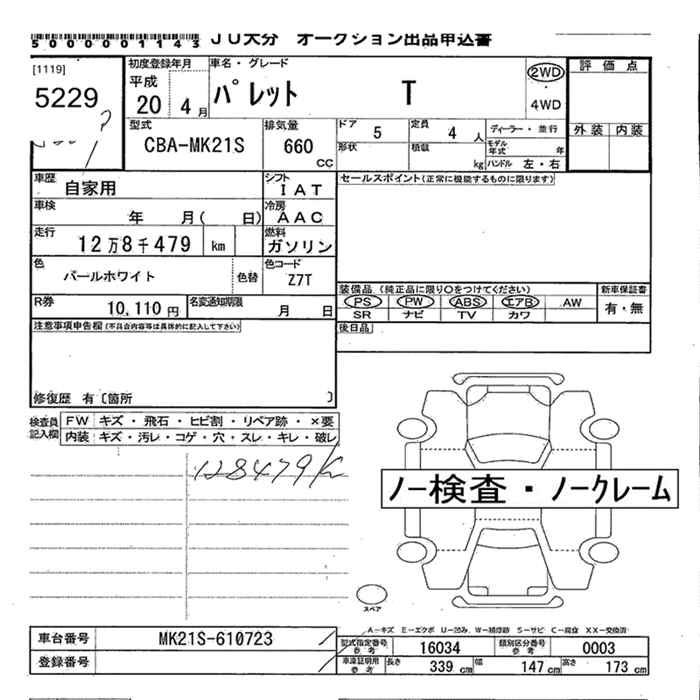 5000001143 JU大分 オークション出品申込書
[1119]
5229
初度登録年月
平成
20 4月
車名・グレード
パレット T
2WD
4WD
評価点
外装 内装
型式
CBA-MK21S
排気量
660
cc
ドア 5
定員 4 人
ディーラー・並行
形状
積載 kg
モデル年式 年
ハンドル 左・右
車歴 自家用
シフト IAT
セールスポイント(正常に機能するものに限ります)
車検 年 月( 日)
冷房 AAC
走行 12万8千479 km
燃料 ガソリン
色 パールホワイト 色替
色コード Z7T
R券 10,110円
名変通知期限 月 日
装備品(純正品に限り○をつけてください)
新車保証書
PS PW ABS エアB AW
有・無
SR ナビ TV カワ
後日品
注意事項申告欄(不具合内容等は具体的に記入して下さい)
修復歴 有〔箇所 〕
検査員記入欄
FW キズ・飛石・ヒビ割・リペア跡・×要
内装 キズ・汚レ・コゲ・穴・スレ・キレ・破レ
128479K
ノー検査・ノークレーム
スペア
A-キズ E-エクボ U-凹み W-補修跡 S-サビ C-腐食 XX-交換済
車台番号 MK21S-610723
登録番号
型式指定番号 参考 16034
類別区分番号 参考 0003
車庫証明用 参考 長さ 339cm 幅 147cm 高さ 173cm